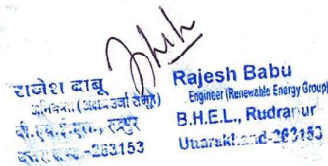 राजेश बाबू
अभियन्ता (अक्षय उर्जा समूह)
बी.एच.ई.एल., रुद्रपुर
-263153
Rajesh Babu
Engineer (Renewable Energy Group)
B.H.E.L., Rudrapur
Uttarakhand-263153